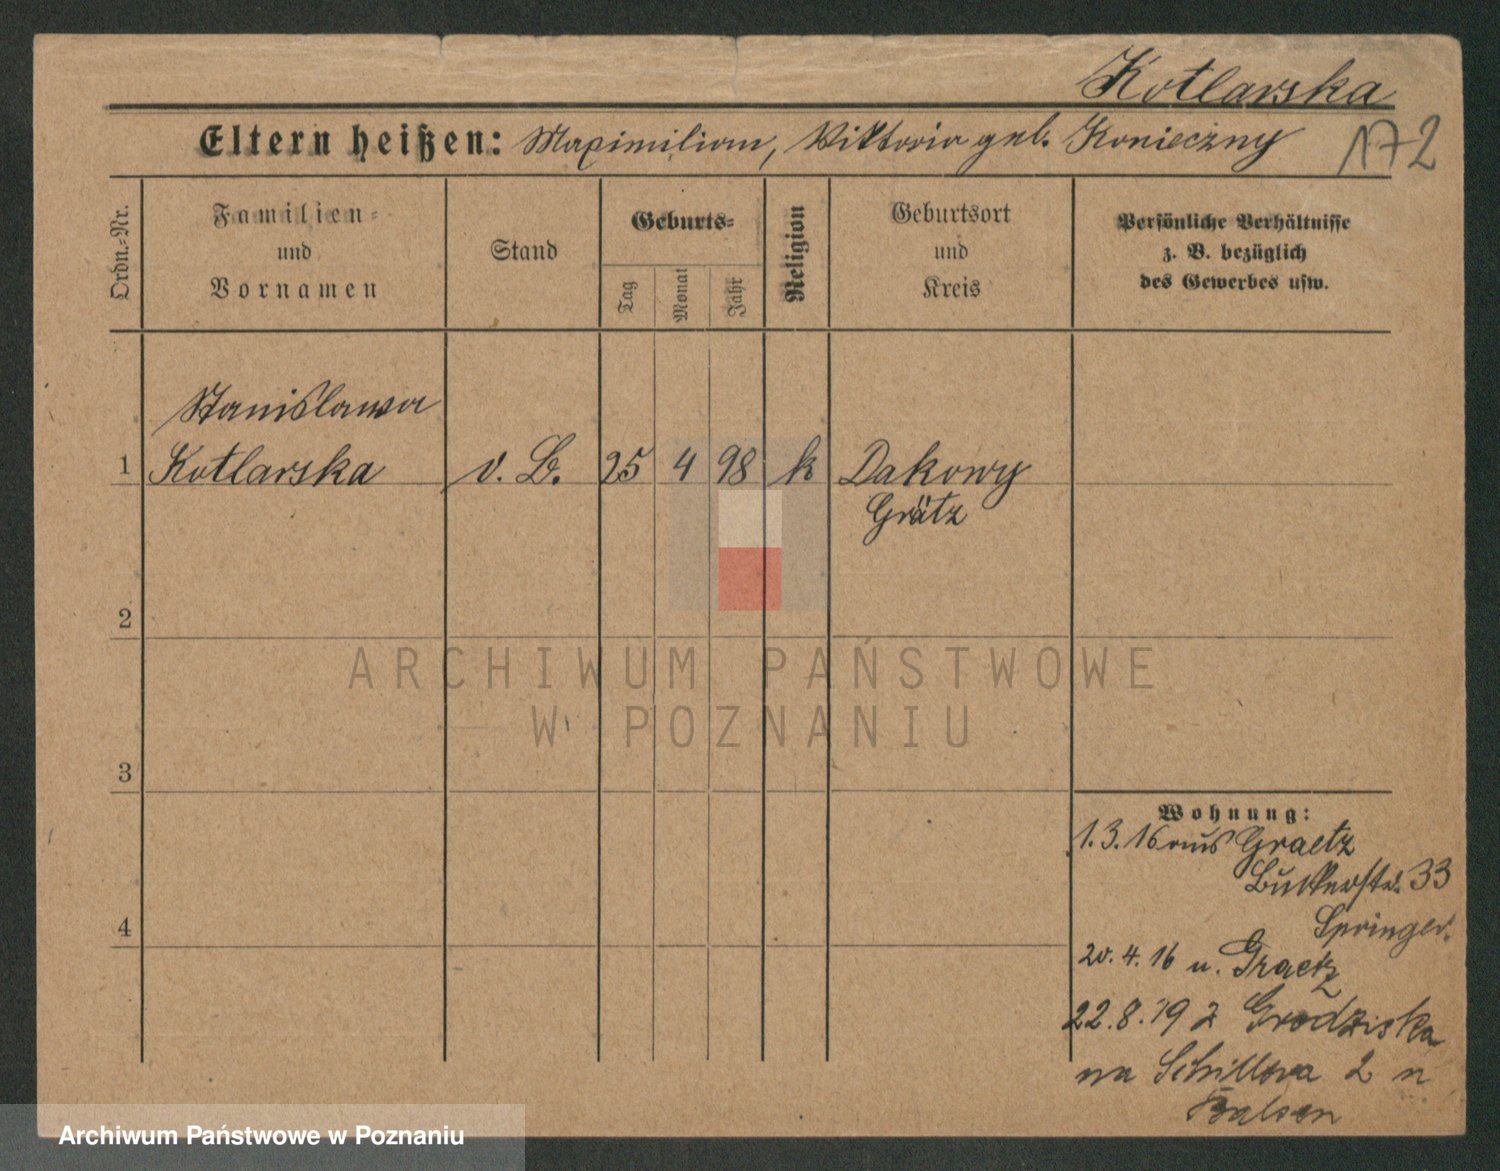 Kotlarska
Eltern heißen: Maximilian, Viktoria geb. Konieczny
172
Ordn.-Nr.
Familien-
und
Vornamen
Stand
Geburts-
Tag
Monat
Jahr
Religion
Geburtsort
und
Kreis
Persönliche Verhältnisse
z. B. bezüglich
des Gewerbes usw.
Stanislawa
1 Kotlarska v. B. 25 4 98 k Dakowy
Grätz
2
ARCHIWUM PAŃSTWOWE
W POZNANIU
3
Wohnung:
1.3.16 aus Graetz
33
Springer.
4
20.4.16 n. Graetz
22.8.19 z Grodziska
na Schillera 2 u
Archiwum Państwowe w Poznaniu